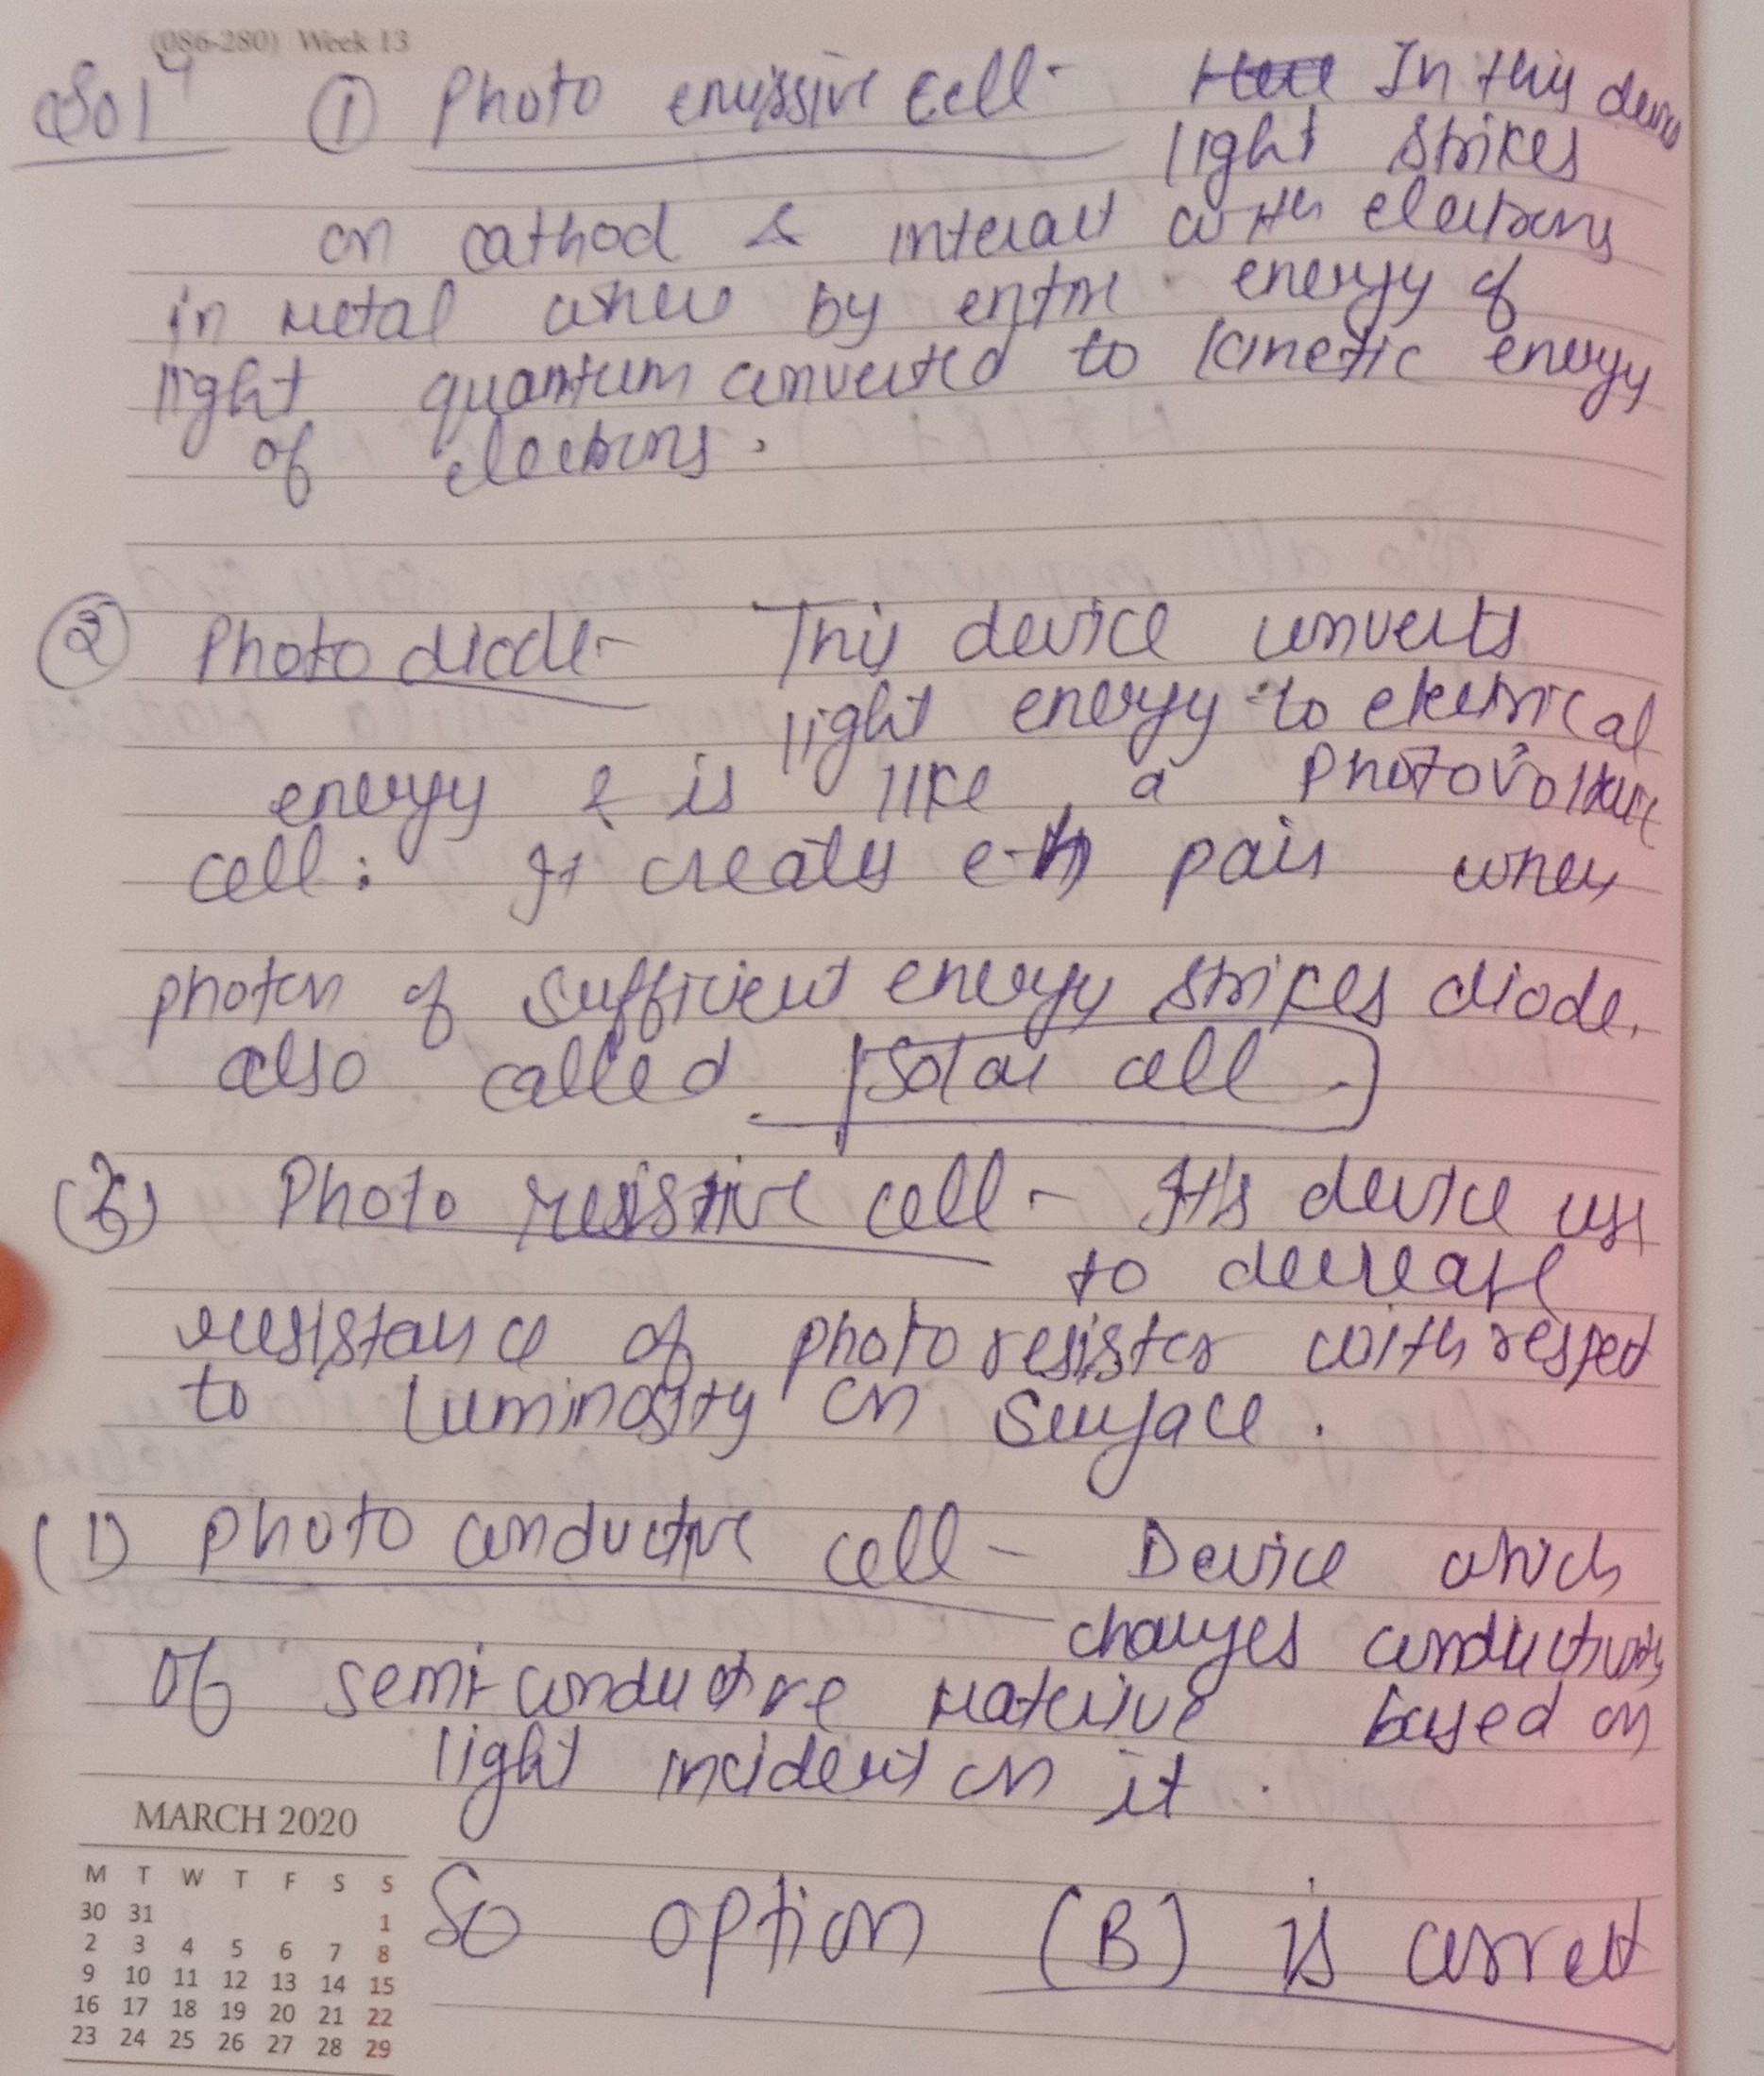 (086-280) Week 13
Solⁿ ① Photo emissive cell - In this device
light strikes
on cathod & interact with electrons
in metal where by entire energy of
light quantum converted to kinetic energy
of electrons.
② Photo diode - This device converts
light energy to electrical
energy & is like a photovoltaic
cell. It creates e-h pair when
photon of sufficient energy strikes diode.
also called Solar cell.
(3) Photo resistive cell - It's device use
to decrease
resistance of photo resister with respect
to luminosity on surface.
(1) Photo conductive cell - Device which
changes conductivity
of semi conductive based on
light incident on it.
So option (B) is correct
MARCH 2020
M T W T F S S
30 31 1
2 3 4 5 6 7 8
9 10 11 12 13 14 15
16 17 18 19 20 21 22
23 24 25 26 27 28 29